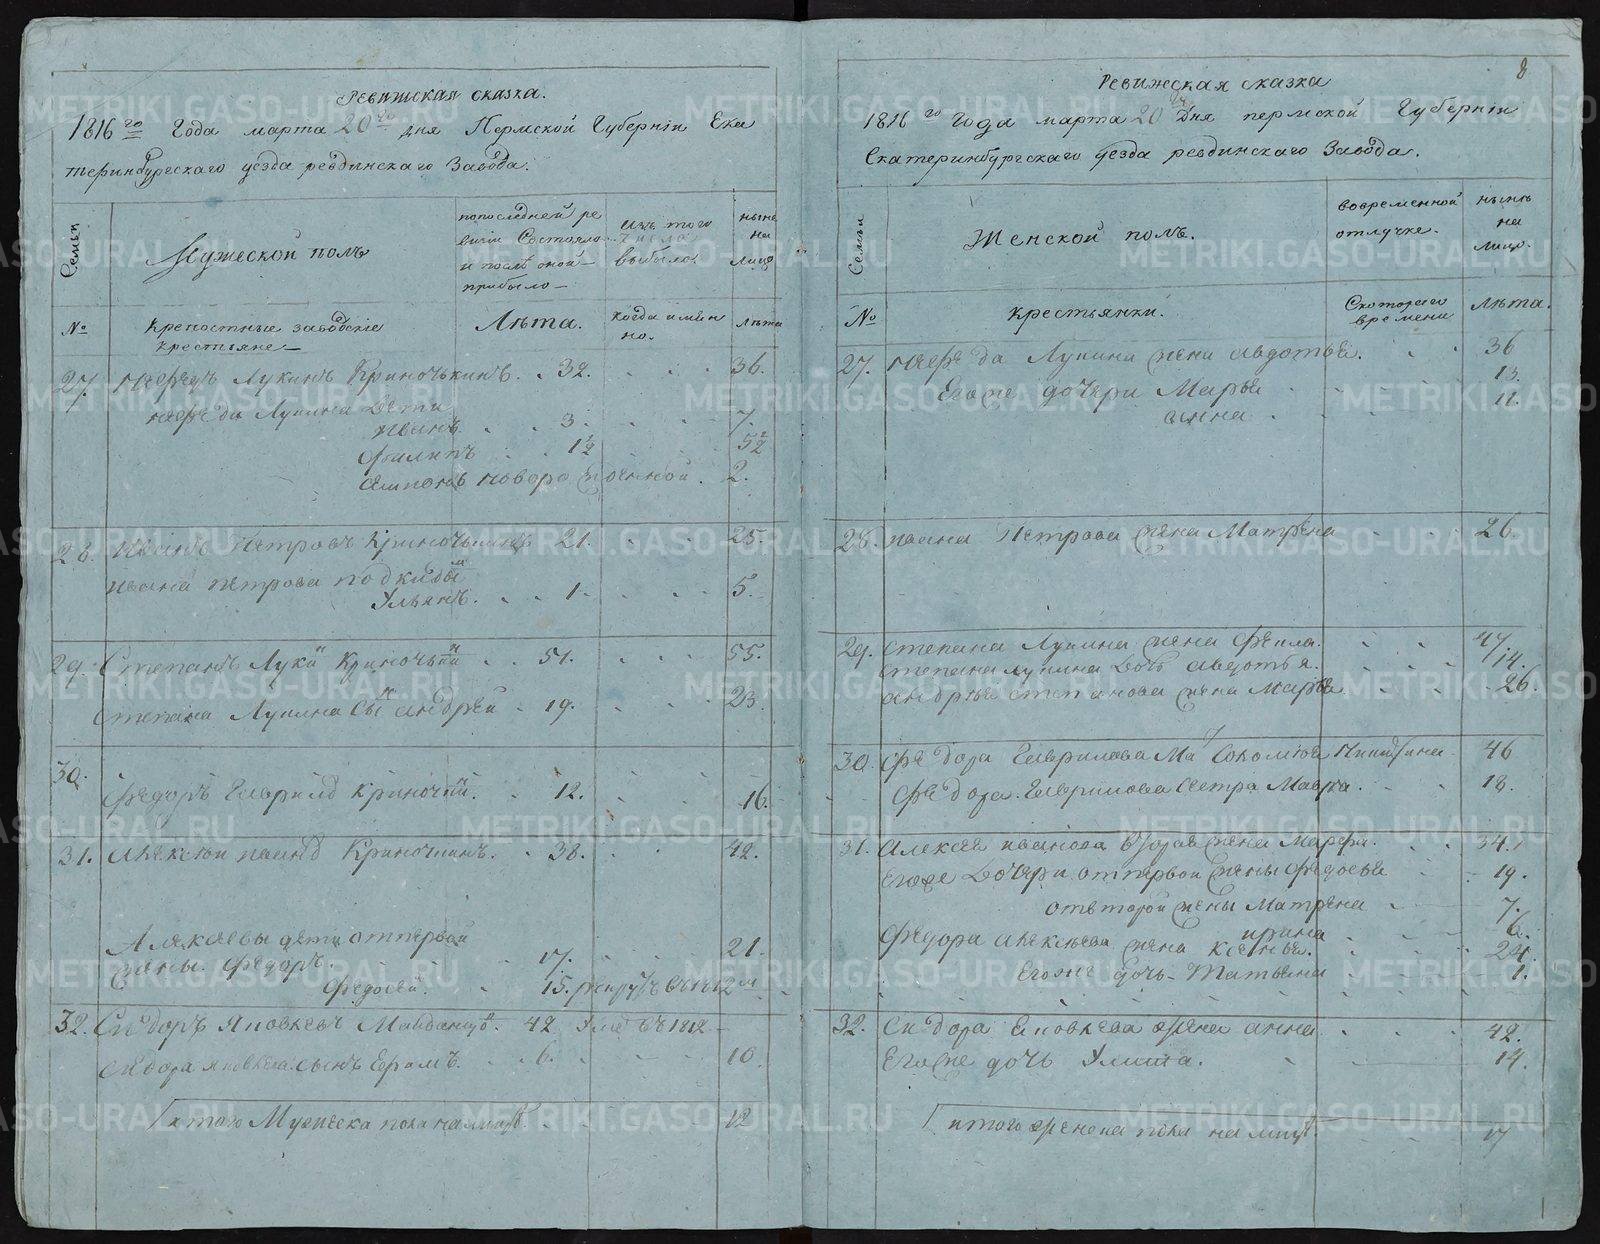 Ревижская сказка.
1816го Года марта 20го дня Пермской Губернїи Ека
теринбургскаго уезда ревдинскаго Завода.
Семьи
Мужеской полъ
попоследней ре
визiи Состояло
и после оной
прибыло
изъ того
числа
выбыло
ныне
на
лицо
№
Крепостные заводскiе
крестьяне
Лѣта.
когда имян
но.
лѣта
27. Лукинъ Криночькинъ. 32. 36.
Лукина Дети
иванъ 3. 7.
Филипъ 1½ 5½
новорожденной. 2.
28. Иванъ Петровъ Криночькинъ 21. 25.
ивана петрова подкидыш
Ульянъ. 1. 5.
29. Степанъ Луки Криночьки 51. 55.
Степана Лукина сы андрей 19. 23.
30.
Федоръ Гаврилъ Криночки. 12. 16.
31. Алексей ивановъ Криночкинъ. 38. 42.
Алексеевы дети отпервой
жены. Федоръ. 17. 21.
Федосей. 15. рекрутъ въ1812м
32. Сидоръ Яковлевъ 42 въ1812
Сидора яковлева. сынъ Ефимъ. 6. 10.
итого Мужеска пола налицо. 12
8
Ревижская сказка
1816го Года марта 20го Дня пермской Губернїи
Екатеринбургскаго уезда ревдинскаго Завода.
Семьи
Женской полъ.
вовременной
отлучке.
ныне
на
лицо.
№
Крестьянки.
Скоторого
времени
Лѣта.
27. Лукина жена авдотья. 36
Егоже дочери Марья 13.
анна 11.
28. ивана Петрова жена Матрена 26.
29. Степана Лукина жена Фекла. 47.
Степана лукина дочь авдотья. 14.
андрея степанова жена Марья 26.
30. Федора Гаврилова Ма 46
Федора Гаврилова сестра Мавра. 18.
31. Алексея иванова вторая жена Марфа. 34.
Егоже дочери отпервой жены Федосья 19.
отвторой жены Матрена 7.
ирина 6.
Федора алексеева жена Ксенья. 24.
Егоже дочь Татьяна 1.
32. Сидора Яковлева жена анна 42.
Егоже дочь Улита. 14.
итого женска пола на лицо. 17
METRIKI.GASO-URAL.RU